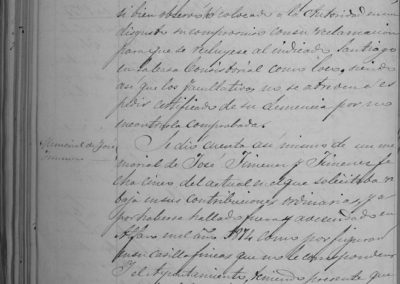 si bien observó colocado a la Autoridad en un
disgusto su compromiso con su reclamacion
para que se recluyese al indicado Santiago
en la casa Consistorial como loco, siendo
asi que los facultativos no se atreven a es
pedir certificado de su demencia por no
encontrarla comprobada.
Memorial de José
Jimenez
Se dió cuenta asi mismo de un me
morial de José Jimenez y Jimenez fe
cha cinco del actual en el que solicitaba re
baja en sus contribuciones ordinarias, ya
por haberse hallado fuera y avecindado en
Alfaro en el año 1874 como por figurar
en su casilla fincas que no le corresponden
Y el Ayuntamiento, teniendo presente que